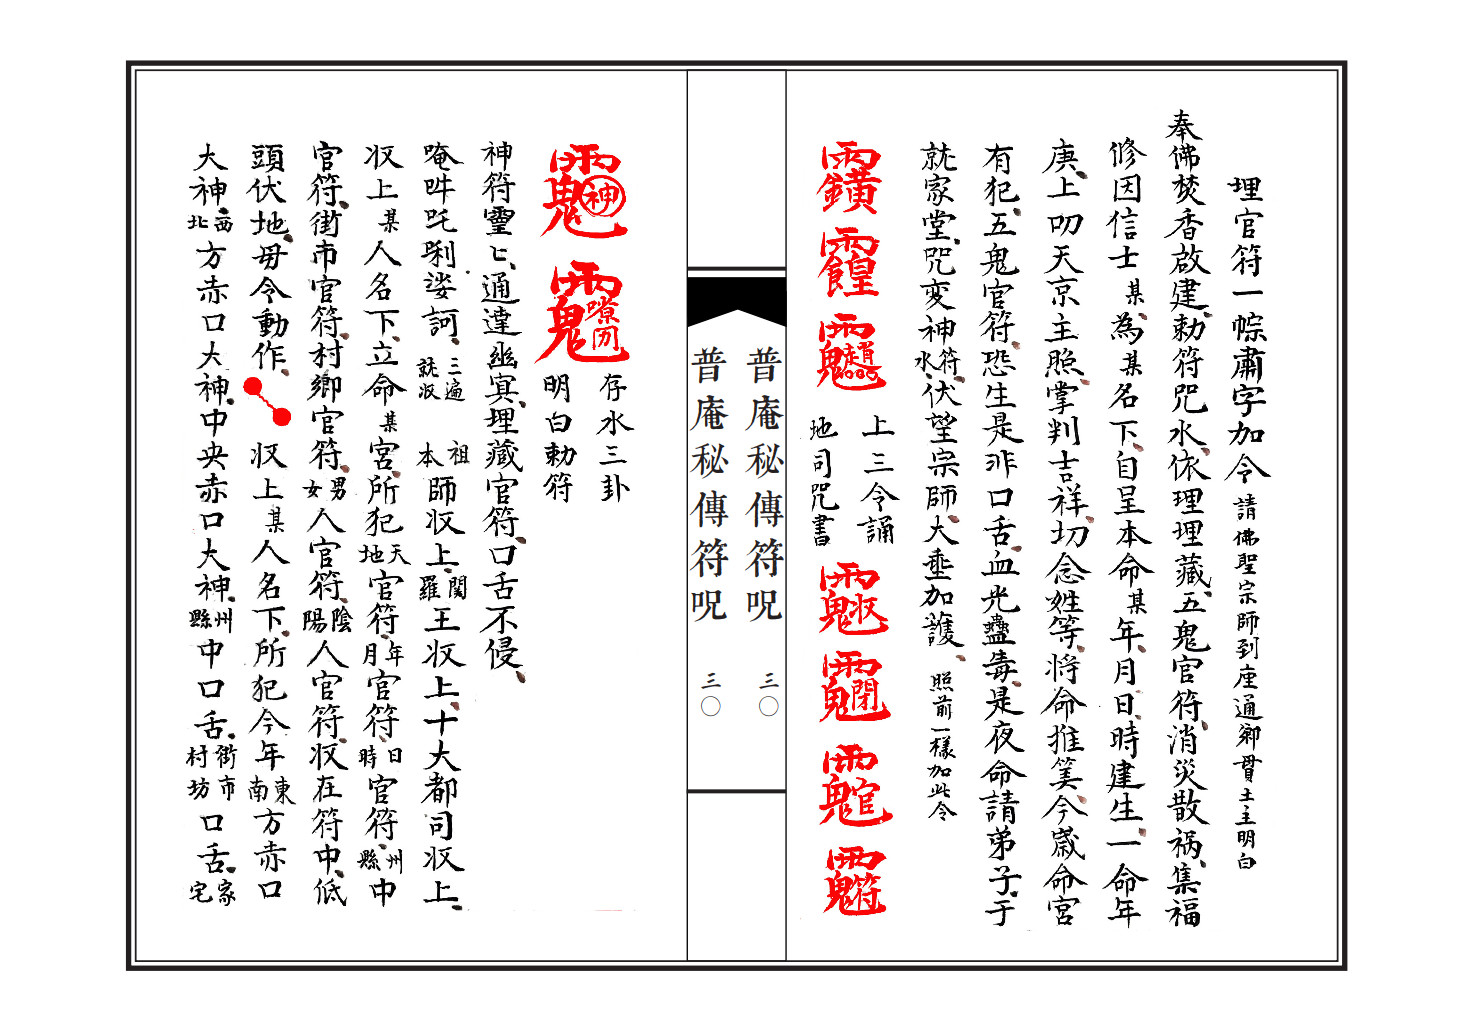 埋官符一幌肅字加令 請佛聖宗師到座通鄉貫土主明白
奉佛焚香啟建、勅符咒水、依理埋藏、五鬼官符、消災散禍、集福
修因信士某、為某名下、自呈本命某年、月日、時建生、一命年
庚、上叨天京主照、掌判吉祥、切念姓等、將命推筭、今歲命宮
有犯、五鬼官符、恐生是非口舌、血光蠱毒、是夜命請弟子、于
就家堂、咒变神水符、伏望宗師、大垂加護、照前一樣加此令
上三令誦
地司咒書
普庵秘傳符呪 三〇
普庵秘傳符呪 三〇
存水三卦
明白勅符
神符靈〻、通達幽冥、埋藏官符、口舌不侵、
唵吽吒唎娑訶、三遍就収 祖本師収上、羅閔王収上、十大都司収上、
収上某人名下、立命某宮、所犯天地官符、年月官符、日時官符、州縣中
官符、街市官符、村鄉官符、男女人官符、陰陽人官符、収在符中、低
頭伏地、毋令動作、収上某人名下、所犯今年東南方赤口
大神、西北方赤口大神、中央赤口大神、州縣中口舌、街市村坊口舌、家宅